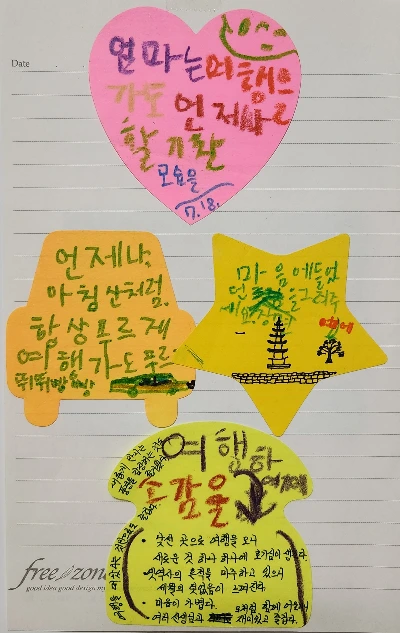 Date
연마는 여행으로
가도 언제나
활기찬
모습을
7.18.
언제나
아침산처럼,
항상푸르게
여행가도 푸르
뛰뛰빵빵
마음에들었
던
들그려주
세요
여행
소감을
여기에
낯선 곳으로 여행을 오니
새로운 것 하나 하나에 호기심이 생긴다.
옛역사의 흔적을 마주하고 있으니
세월의 덧없음이 느껴진다
마음이 가볍다.
여러 선생님과
재미있고 즐겁다.
free zone
good idea good design.my